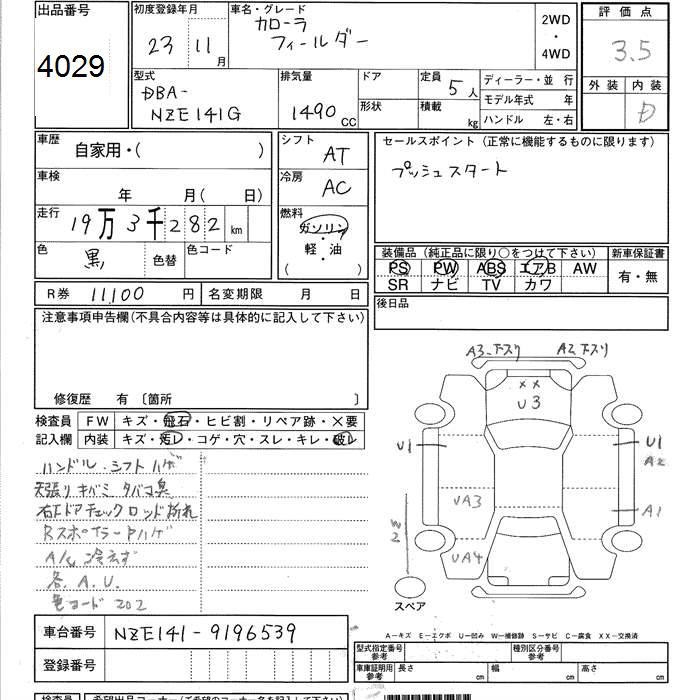 出品番号
4029
初度登録年月
23 11月
車名・グレード
カローラ
フィールダー
2WD
・
4WD
評価点
3.5
外装 内装
D
型式
DBA-
NZE141G
排気量
1490cc
ドア
形状
定員 5人
積載 kg
ディーラー・並 行
モデル年式 年
ハンドル 左・右
車歴
自家用・( )
車検
年 月( 日)
走行
19万3千282km
色
黒 色替
色コード
シフト
AT
冷房
AC
燃料
ガソリン
・
軽・油
( )
セールスポイント (正常に機能するものに限ります)
プッシュスタート
装備品 (純正品に限り○をつけて下さい)
PS PW ABS エアB AW
SR ナビ TV カワ
新車保証書
有・無
R券 11,100円
名変期限 月 日
後日品
注意事項申告欄(不具合内容等は具体的に記入して下さい)
修復歴 有 〔箇所 〕
検査員
記入欄
FW キズ・飛石・ヒビ割・リペア跡・×要
内装 キズ・汚レ・コゲ・穴・スレ・キレ・破レ
ハンドル・シフトハゲ
天張りキバミ タバコ臭
右FドアチェックロッドI折れ
Rスポイラー Pハゲ
A/C 冷えず
各.A.U.
色コード 202
A3.下スリ A2下スリ
××
U3
U1
U1
A2
UA3
A1
W2
UA4
スペア
A－キズ E－エクボ U－凹み W－補修跡 S－サビ C－腐食 XX－交換済
車台番号 NZE141-9196539
登録番号
型式指定番号
参考
種別区分番号
参考
車庫証明用
参考
長さ 幅 高さ
cm
検査員